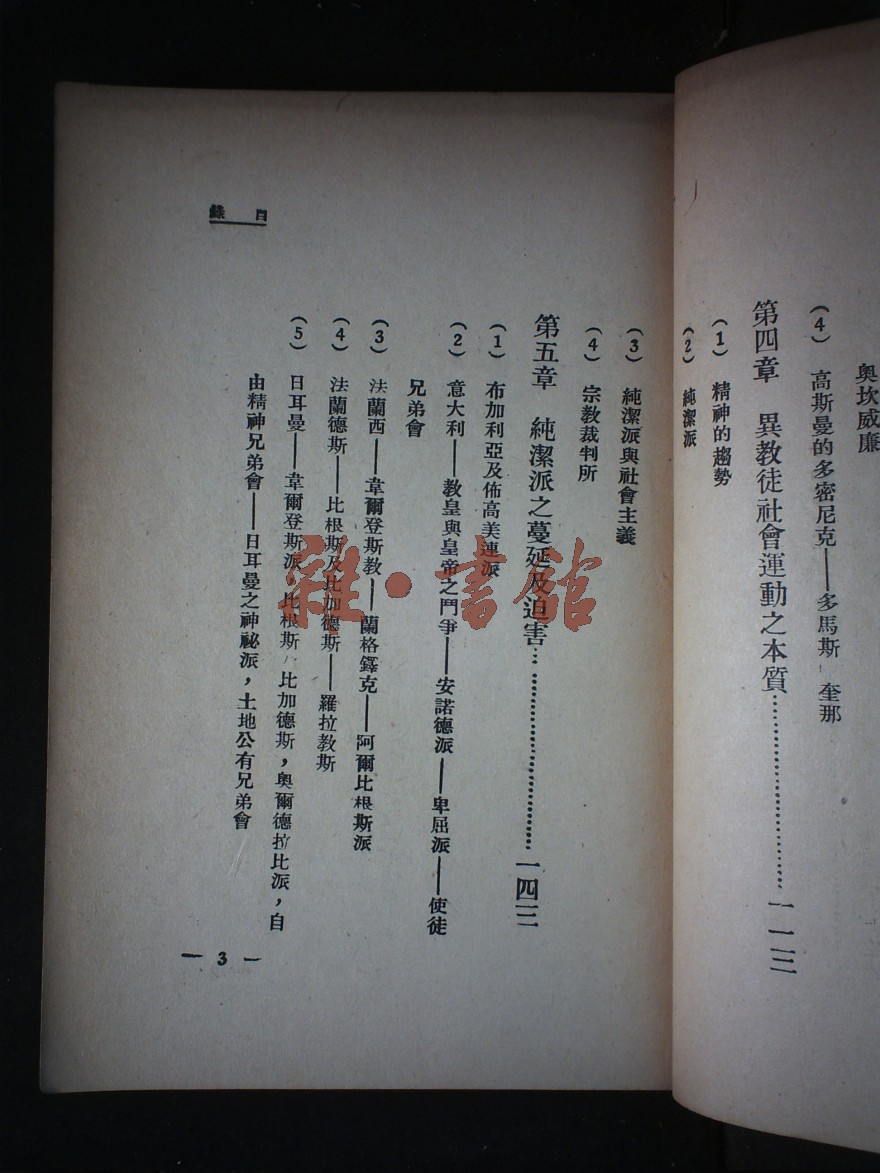 奧坎威廉
(4) 高斯曼的多密尼克——多馬斯 奎那
第四章 異教徒社會運動之本質……………………一一三
(1) 精神的趨勢
(2) 純潔派
目錄
(3) 純潔派與社會主義
(4) 宗教裁判所
第五章 純潔派之蔓延及迫害……………………一四三
(1) 布加利亞及佈高美連派
(2) 意大利——教皇與皇帝之鬥爭——安諾德派——卑屈派——使徒
兄弟會
(3) 法蘭西——韋爾登斯教——蘭格鐸克——阿爾比根斯派
(4) 法蘭德斯——比根斯及比加德斯——羅拉教斯
(5) 日耳曼——韋爾登斯派,比根斯,比加德斯,奧爾德拉比派,自
由精神兄弟會——日耳曼之神祕派,土地公有兄弟會
— 3 —
雜·書館